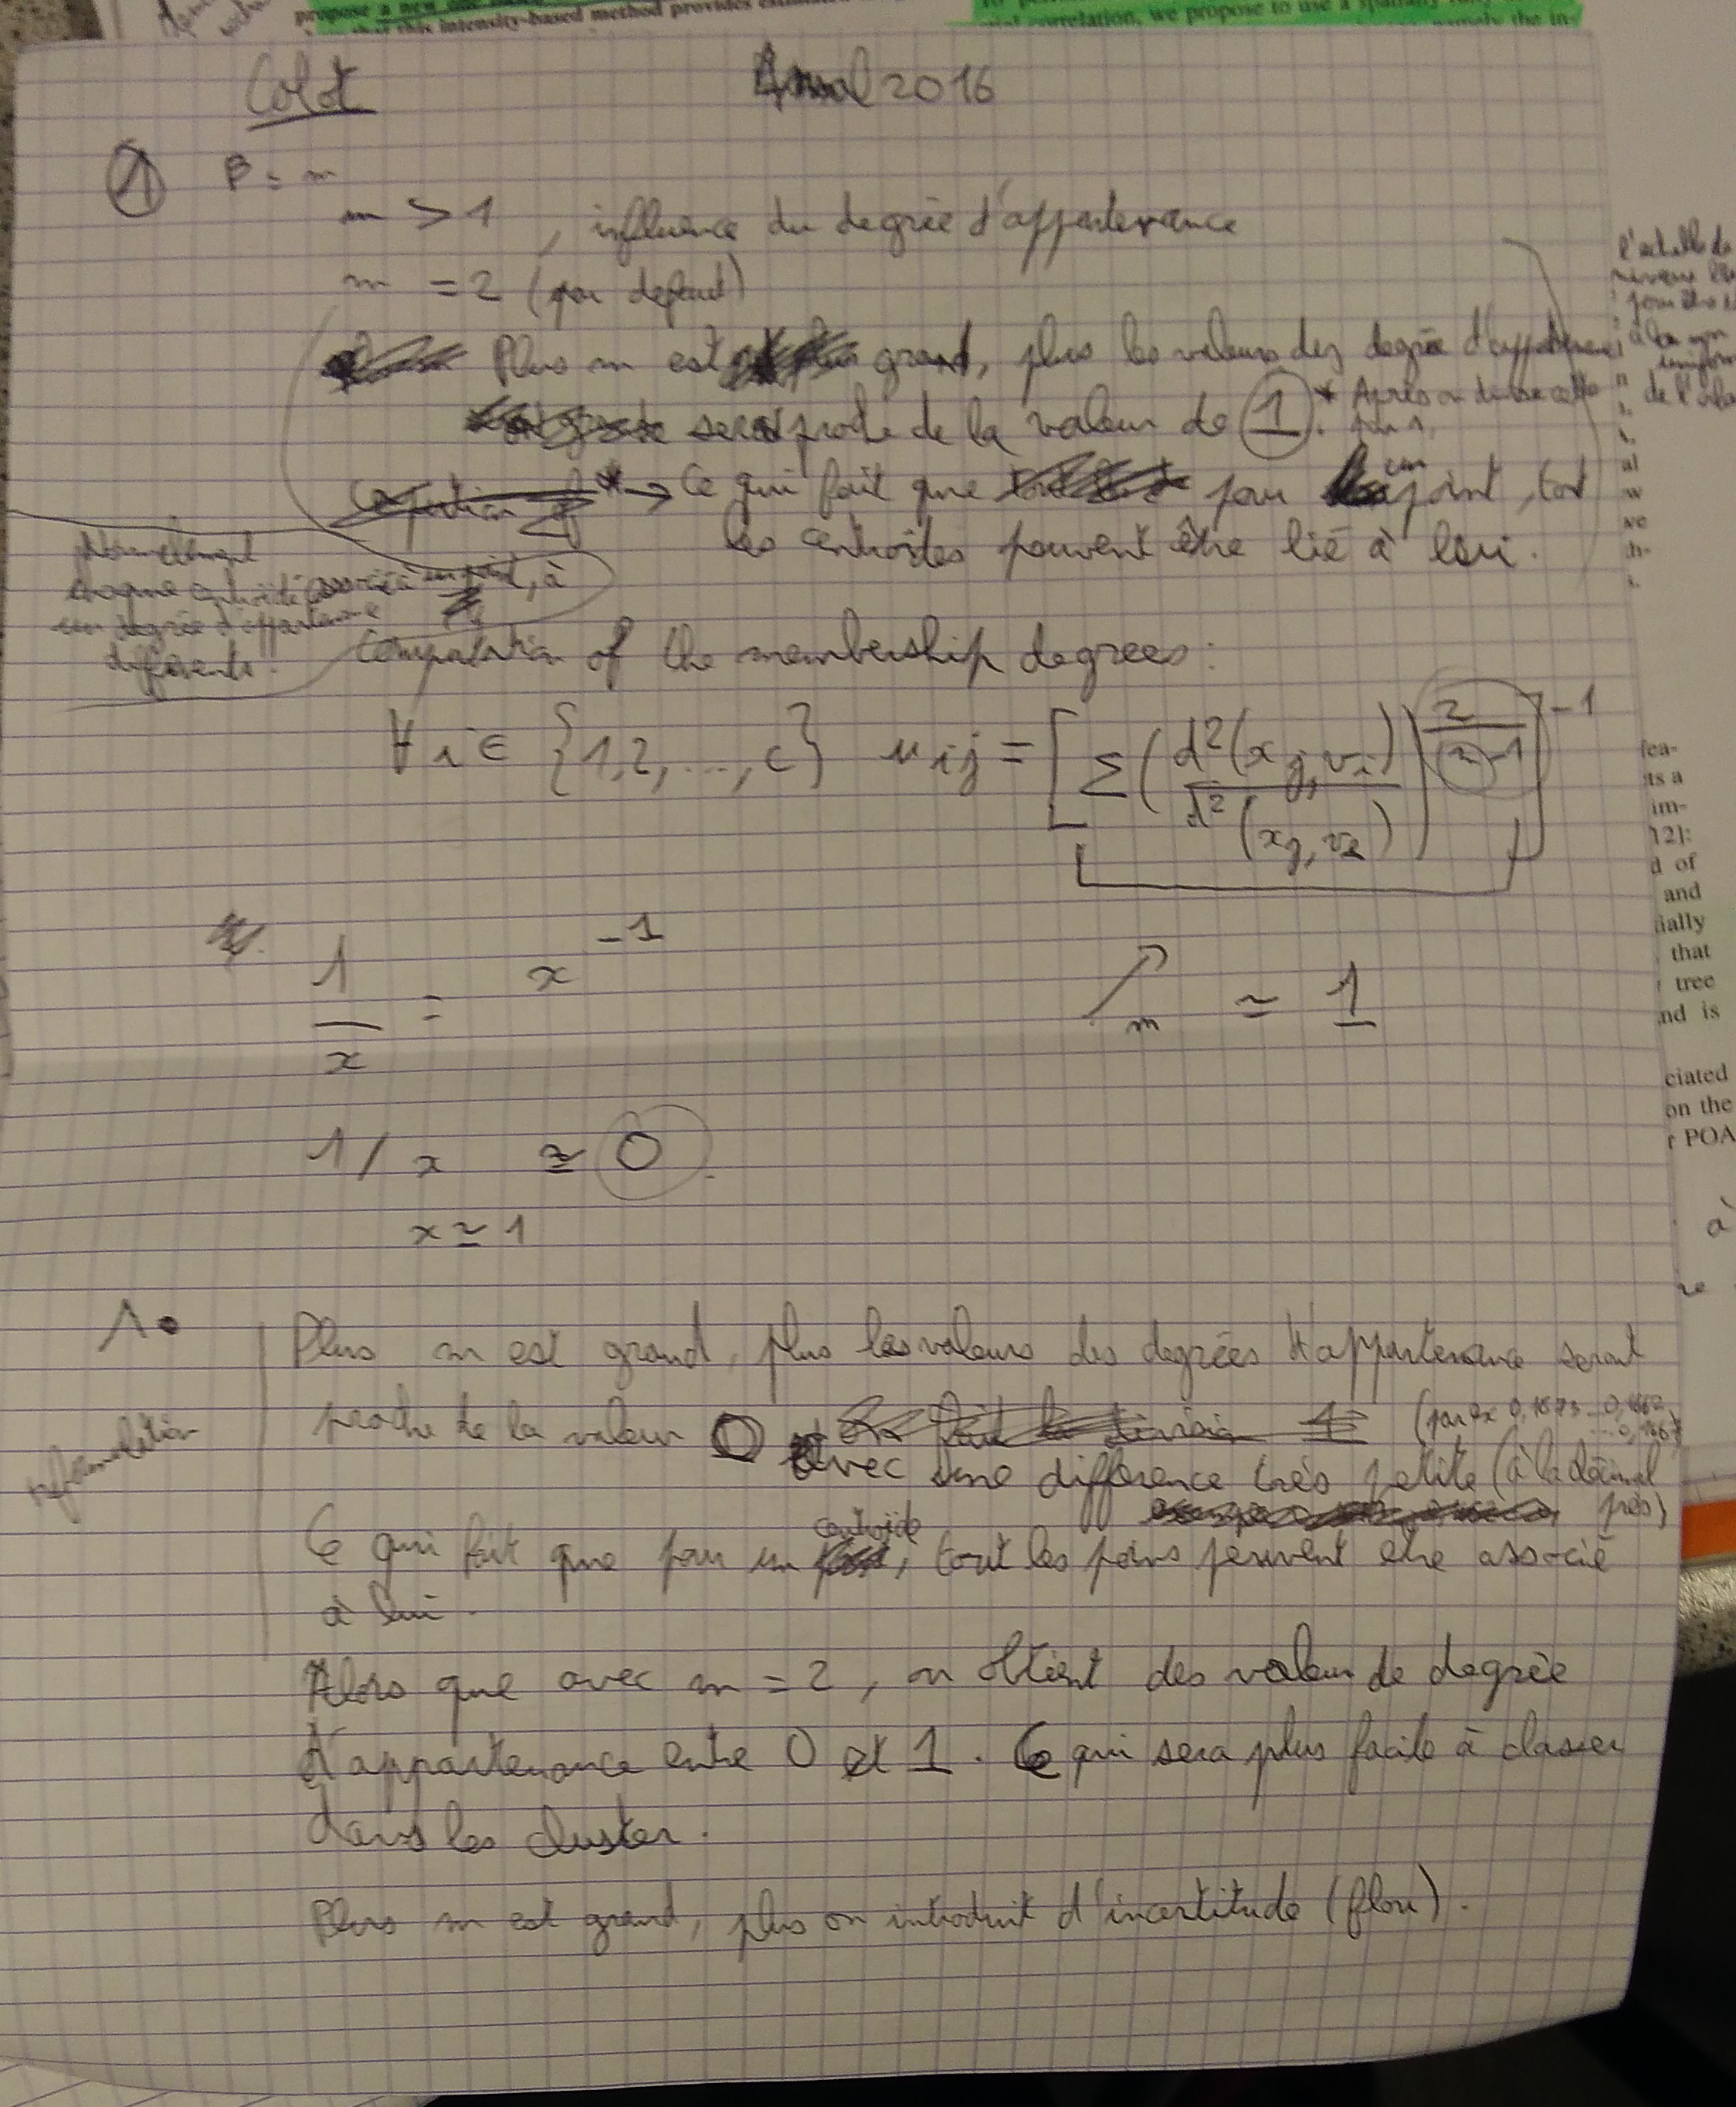 propose a new
that this intensity-based method provides estimated
tial correlation, we propose to use a spatially
namely the in-
Colot
Annal 2016
① β = m
m > 1 , influence du degrée d'appartenance
m = 2 (par defaut)
Plus m est grand, plus les valeurs des degrée d'appartenance
sera proche de la valeur de 1. * Après on divise cette
par 1.
* → Ce qui fait que pour un point, tout
les centroides peuvent être lié à lui.
Normalement
chaque centroide associé à un point, à
un degrée d'appartenance
différents.
Computation of the membership degrees :
∀ i ∈ {1,2,...,c} u ij = [ Σ ( d²(x j, v i) / d²(x j, v k) ) ^ 2/(m-1) ] ^ -1
1/x = x ^ -1
↗ m ≃ 1
1/x ≃ 0.
x ≃ 1
1.
reformulation
Plus m est grand, plus les valeurs des degrées d'appartenance seront
proche de la valeur 0 (par ex 0,1673 ... 0,1662
... 0,1667)
avec une différence très petite (à la décimal
près)
Ce qui fait que pour un centroide, tout les poins peuvent etre associé
à lui.
Alors que avec m = 2, on obtient des valeur de degrée
d'appartenance entre 0 et 1. Ce qui sera plus facile à classer
dans les cluster.
Plus m est grand, plus on introduit d'incertitude (flou).
l'échelle de
de l'
al
w
we
th-
s.
fea-
its a
im-
12]:
d of
and
tially
that
tree
and is
ciated
on the
r POA
à